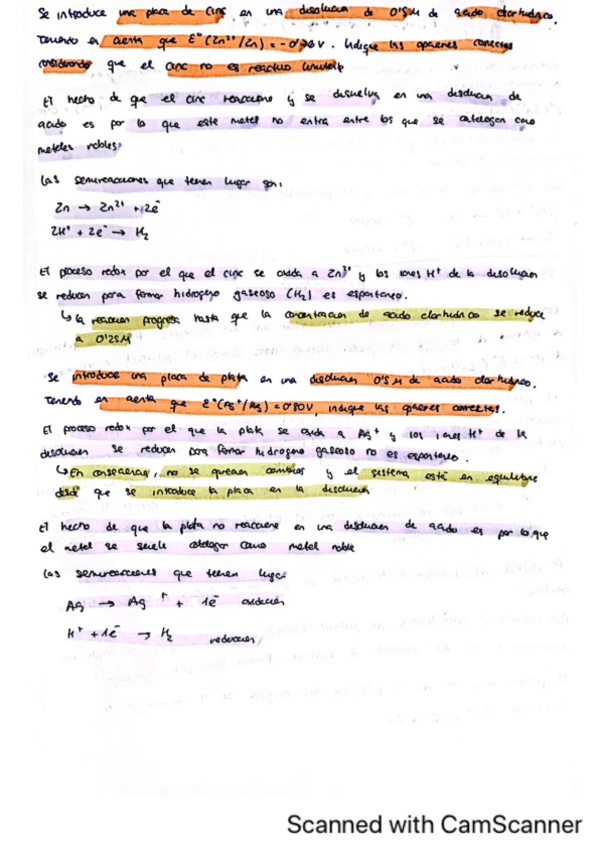 Se introduce una placa de cinc en una disolución de 0'5M de ácido clorhídrico.
Teniendo en cuenta que E°(Zn²⁺/Zn) = -0'76V. Indique las opciones correctas
considerando que el cinc no es reactivo limitante
El hecho de que el cinc reaccione y se disuelva en una disolución de
ácido es por lo que este metal no entra entre los que se catalogan como
metales nobles.
Las semireacciones que tienen lugar son:
Zn → Zn²⁺ + 2e⁻
2H⁺ + 2e⁻ → H₂
El proceso redox por el que el cinc se oxida a Zn²⁺ y los iones H⁺ de la disolución
se reducen para formar hidrógeno gaseoso (H₂) es espontáneo.
↳ la reacción progresa hasta que la concentración de ácido clorhídrico se reduce
a 0'25M
Se introduce una placa de plata en una disolución 0'5 M de ácido clorhídrico.
Teniendo en cuenta que E°(Ag⁺/Ag) = 0'80V, indique las opciones correctas.
El proceso redox por el que la plata se oxida a Ag⁺ y los iones H⁺ de la
disolución se reducen para formar hidrógeno gaseoso no es espontáneo.
↳ En consecuencia, no se aprecian cambios y el sistema está en equilibrio
desde que se introduce la placa en la disolución
El hecho de que la plata no reaccione en una disolución de ácido es por lo que
el metal se suele catalogar como metal noble
Las semireacciones que tienen lugar
Ag → Ag⁺ + 1e⁻ oxidación
H⁺ + 1e⁻ → H₂ reducción
Scanned with CamScanner